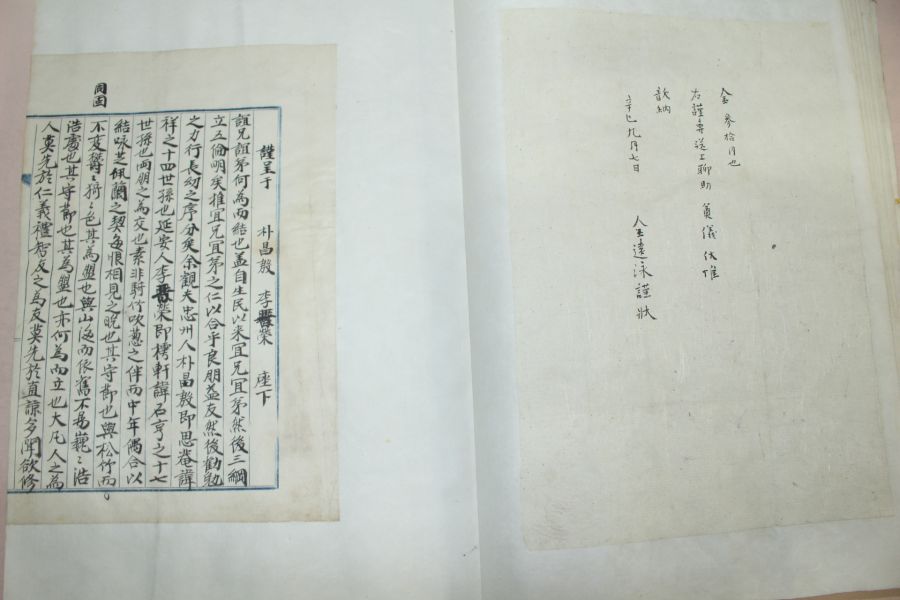 金 參拾円也
右謹專送上聊助 奠儀 伏惟
歆納
辛巳 九月 七日
人 王遠泳 謹狀
謹呈于 朴昌毅 李晋榮 座下
誼兄誼弟何為而結也盖自生民以来宜兄宜弟然後三綱
立五倫明矣推宜兄宜弟之仁以合乎良朋益友然後勸勉
之力行長幼之序分矣余觀夫忠州人朴昌毅即思菴諱
祥之十四世孫也延安人李晋榮即樗軒諱石亨之十七
世孫也両朋之為交也素非騎竹吹葱之伴而中年偶合以
結咏芝佩蘭之契每恨相見之晚也其守節也與松竹而
不変欝欝猗猗之色其為盟也與山海而依舊不易巍巍浩
浩處也其守節也其為盟也亦何為而立也大凡人之為
人莫先於仁義禮智友之為友莫先於直諒多聞欲修